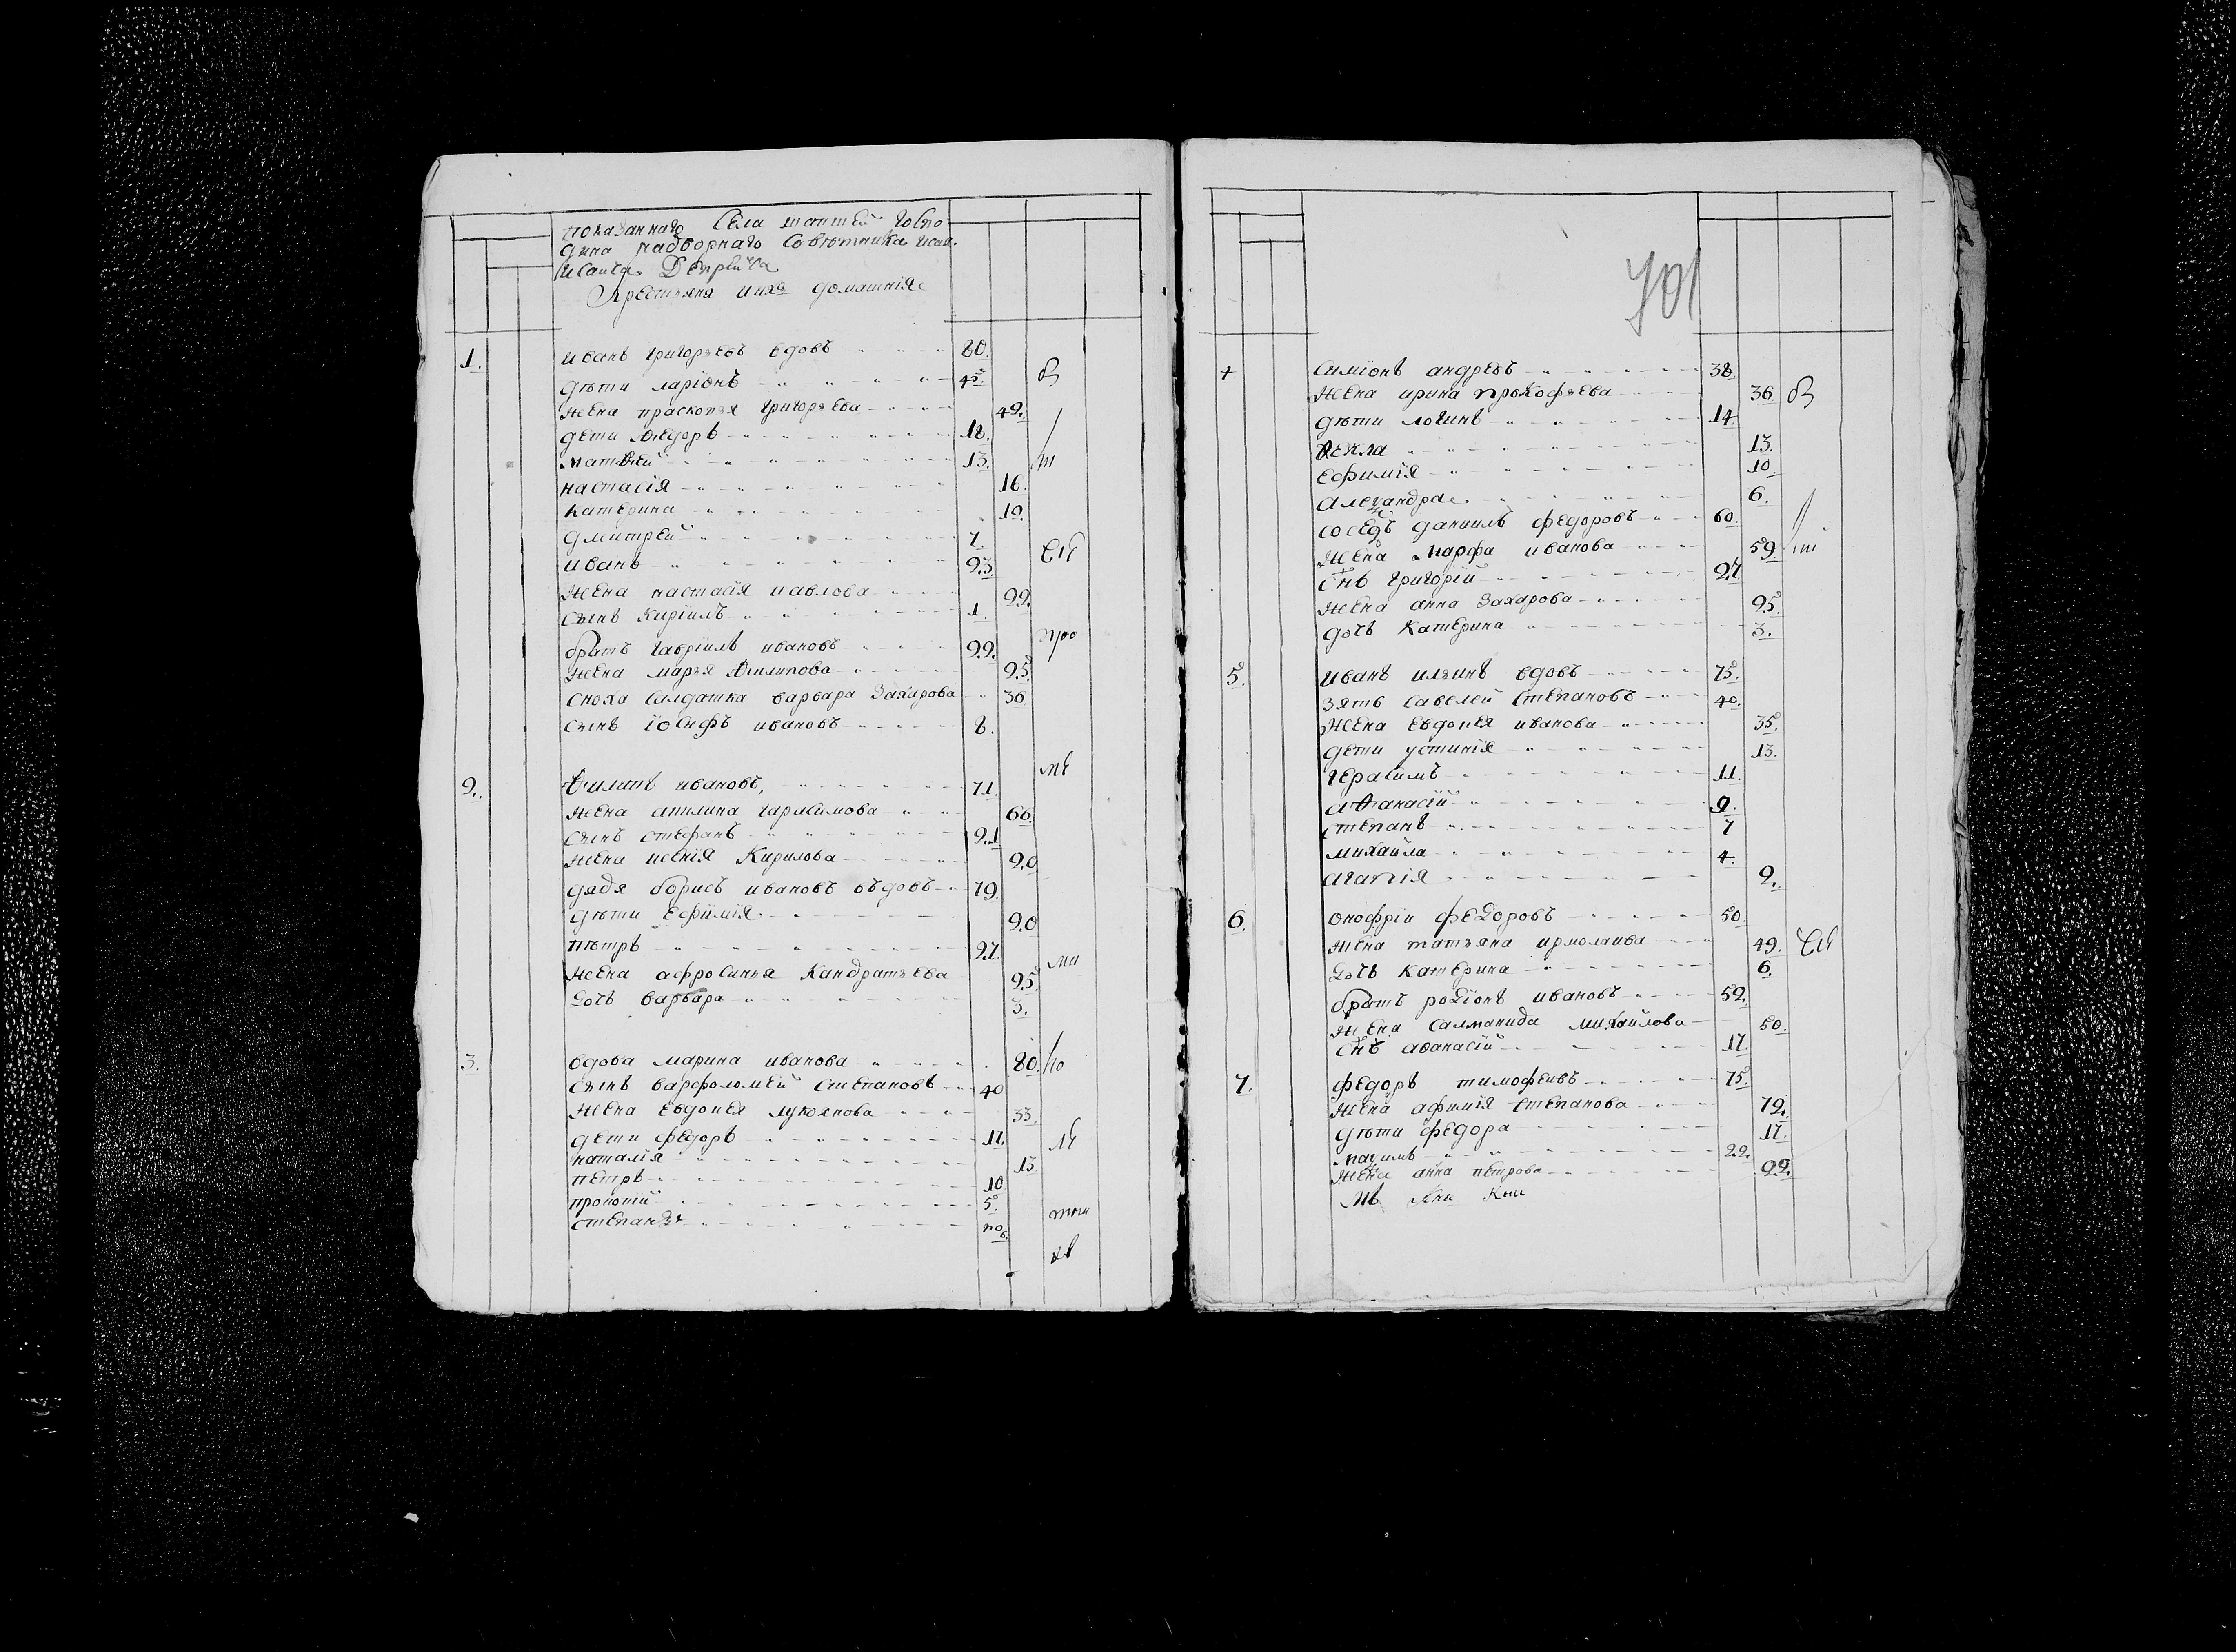 показаннаго Села тантѣй Госпо
дина надворнаго Совѣтника исаи
исаича
Крестьяня ихъ домашнія
1. иванъ григорьевъ вдовъ 80.
дѣти ларіонъ 45.
жена прасковья григорьева 42.
дети ѳедоръ 18.
матвѣй 13.
настасія 16.
катерина 12.
дмитрей 7.
иванъ 23.
жена настасія павлова 22.
сынъ кирилъ 1.
братъ гаврилъ ивановъ 22.
жена марья ѳилипова 25.
сноха салдатка варвара захарова 36
сынъ іосифъ ивановъ 8.
2. ѳилипъ ивановъ, 71.
жена апилина гарасимова 66.
сынъ стефанъ 21
жена ксенія Кирилова 20
дядя борисъ ивановъ въдовъ 79.
дѣти ефимія 20
пѣтръ 27.
жена афросинья Кандратьева 25.
дочь варвара 3.
3. вдова марина иванова 80.
сынъ варфоломей степановъ 40
жена евдокея лукоянова 33.
дети федоръ 17.
наталія 13.
петръ 10
прокопій 5.
степанъ по 6.
701
4 симіонъ андреевъ 38.
жена ирина прокофьева 36
дѣти логинъ 14.
ѳекла 13.
ефимія 10.
алеѯандра 6.
соседъ данилъ федоровъ 60.
жена марфа иванова 59
снъ григорій 27.
жена анна захарова 25.
дочь катерина 3.
5. иванъ ильинъ вдовъ 75.
зять савелей степановъ 40.
жена евдокея иванова 35.
дети устинія 13.
герасимъ 11.
аѳанасій 9.
степанъ 7
михайла 4.
агапія 2.
6. онофрій федоровъ 50.
жена татьяна ирмолаива 49.
дочь катерина 6.
братъ родіонъ ивановъ 52.
жена салманида михайлова 50.
снъ аѳанасій 17.
7. федоръ тимофеивъ 75.
жена афимія степанова 72.
дѣти федора 17.
маѯимъ 22.
жена анна петрова 22.